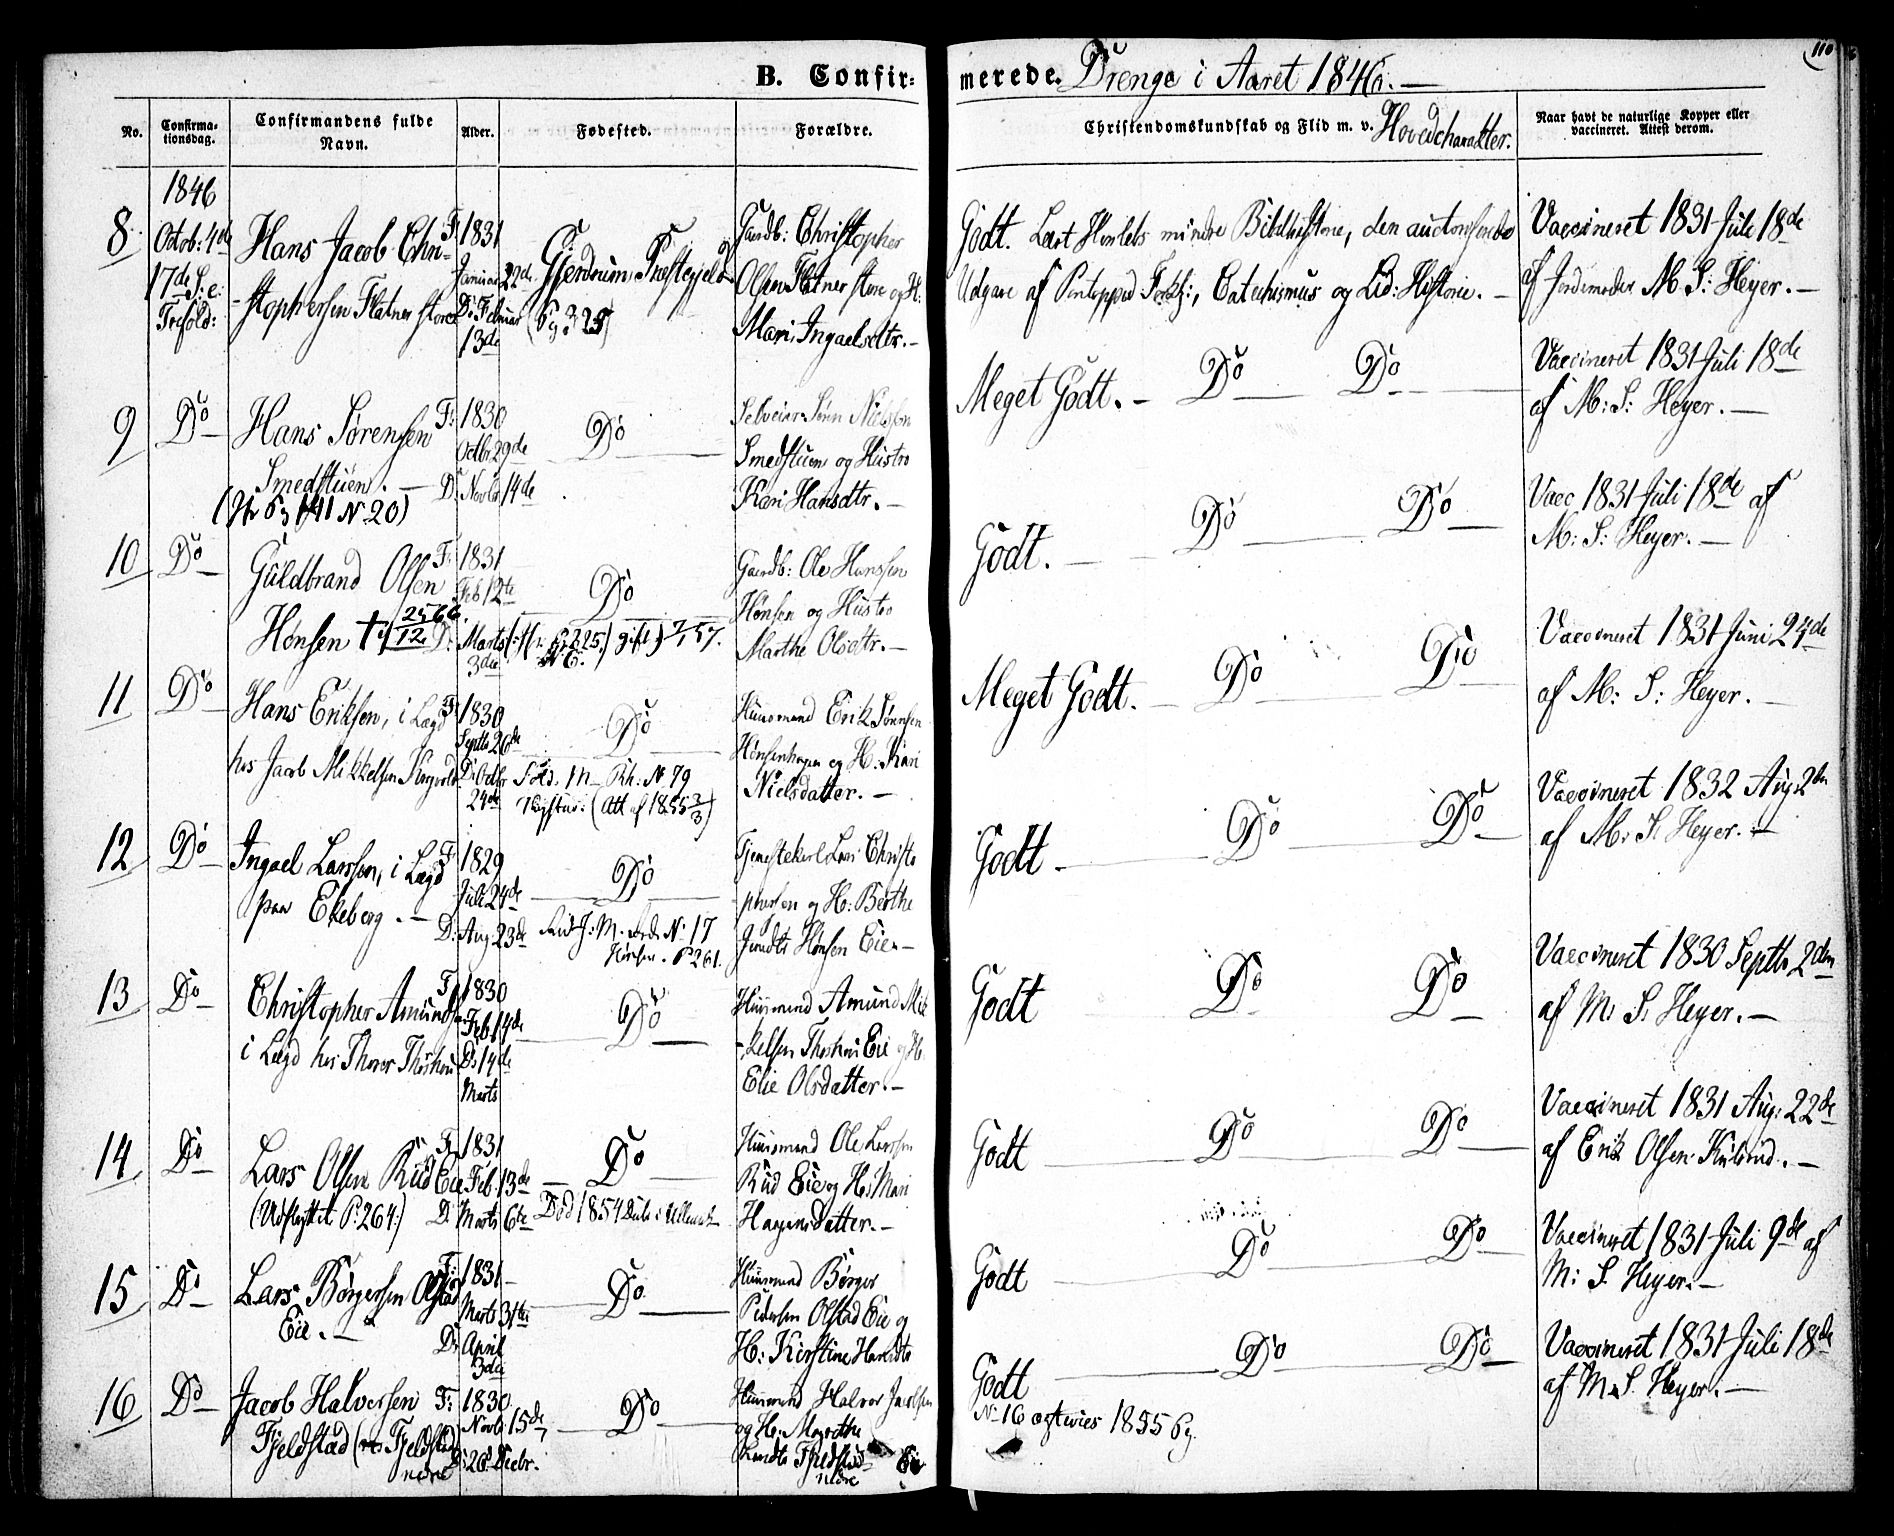 110
B. Confir-
merede. Drenge i Aaret 1846. —
No.
Confirma-
tionsdag.
Confirmandens fulde
Navn.
Alder.
Fødested.
Forældre.
Christendomskundskab og Flid m. v. Hovedcharakter.
Naar havt de naturlige Kopper eller
vaccineret. Attest derom.
8
1846
Octob: 4de
17de S. e:
Trefold:
Hans Jacob Chri-
stophersen Flatner store
F: 1831
Januar 22de
D: Februar
13de
Gjerdrum Præstegjeld
Gaardb: Christopher
Olsen Flatner store og H:
Mari Ingaelsdtr. —
Godt. Læst Herslebs mindre Bibelhistorie, den auctoriserede
Udgave af Pontoppid. Forkl:, Catechismus og Lid: Historie. —
Vaccineret 1831 Juli 18de
af Jordemoder M. S: Heyer. —
9
Do
Hans Sørensen
Smedstuen. —
F: 1830
Octbr 29de
D: Novbr 14de
Do
Selveier Søren Nielsen
Smedstuen og Hustro
Kari Hansdtr. —
Meget Godt. — Do Do
Vaccineret 1831 Juli 18de
af M: S: Heyer. —
10
Do
Guldbrand Olsen
Hønsen
F: 1831
Feb 12te
D: Marts
3die
Do
Gaardb: Ole Hanssen
Hønsen og Hustro
Marthe Olsdtr. —
Godt. — Do Do
Vacc. 1831 Juli 18de af
M: S: Heyer. —
11
Do
Hans Eriksen, i Lægd
hos Jacob Mikkelsen
F: 1830
Septb 26de
D: Octbr
24de
Do
Huusmand Erik Sørensen
Hønsenhagen og H: Kari
Nielsdatter. —
Meget Godt. — Do Do
Vaccineret 1831 Juni 24de
af M: S: Heyer. —
12
Do
Ingael Larssen, i Lægd
paa Ekeberg. —
F: 1829
Juli 24de
D: Aug: 23de
Do
Tjenestekarl Lars Christo
phersen og H: Berthe
Hønsen Eie. —
Godt — Do Do
Vaccineret 1832 Aug 2den
af M: S. Heyer. —
13
Do
Christopher Amunds.
i Lægd hos Thorer
F: 1830
Feb 14de
D: 14de
Marts
Do
Huusmand Amund Mik
kelsen Eie og H:
Elie Olsdatter. —
Godt Do Do
Vaccineret 1830 Septb 2den
af M: S. Heyer. —
14
Do
Lars Olsen Rud Eie
(Udflyttet P: 264.)
F: 1831
Feb. 13de
D: Marts 6te
Do
Død 1854
Huusmand Ole Larssen
Rud Eie og H: Mari
Hagensdatter. —
Godt Do Do
Vaccineret 1831 Aug: 22de
af Erik Olsen
15
Do
Lars Børgersen Olstad
Eie. —
F: 1831
Marts 31te
D: April
3die
Do
Huusmand Børger
Pedersen Olstad Eie og
H: Kirstine
Godt Do Do
Vaccineret 1831 Juli 9de af
M: S. Heyer. —
16
Do
Jacob Halversen
Fjeldstad
nedre
F: 1830
Novb. 15de
D: 26de Decbr.
Do
Huusmand Halvor Jacobsen
og H: Marthe
Fjeldstad
nedre
Eie
Godt Do Do
No 16 1855
Vaccineret 1831 Juli 18de
af M. S. Heyer. —